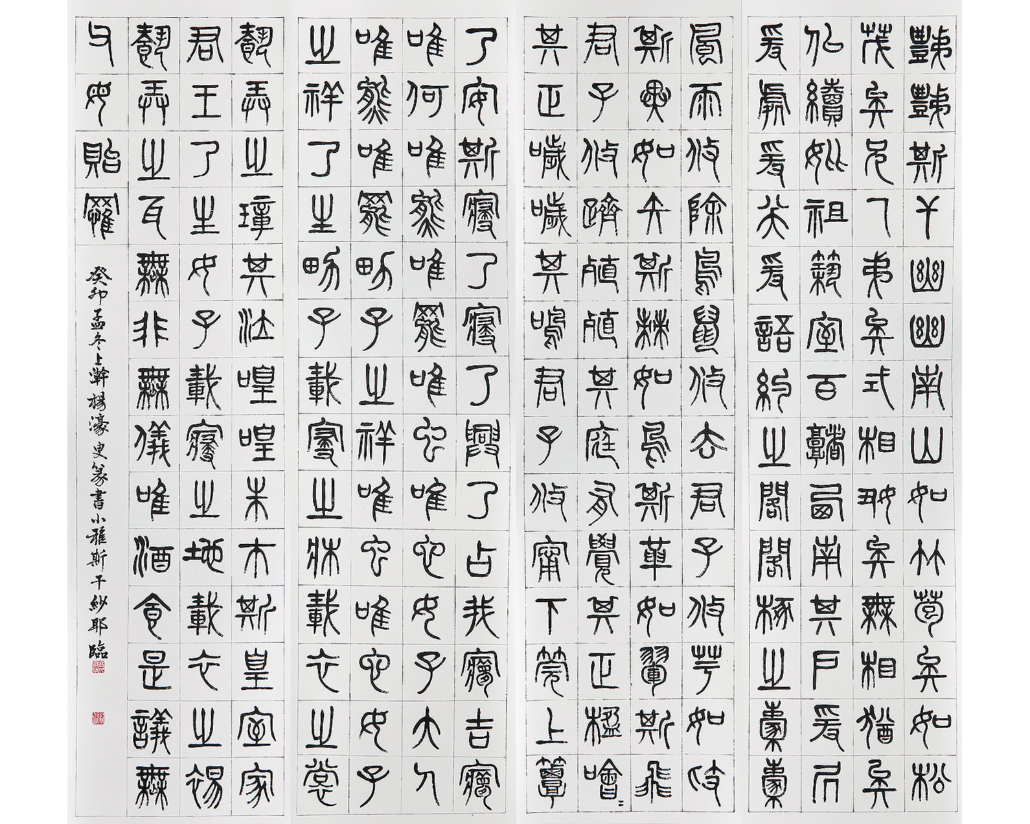 秩秩斯干幽幽南山如竹苞矣如松
茂矣兄及弟矣式相好矣無相猶矣
似續妣祖築室百堵西南其戶爰居
爰處爰笑爰語約之閣閣椓之橐橐
風雨攸除鳥鼠攸去君子攸芋如跂
斯翼如矢斯棘如鳥斯革如翬斯飛
君子攸躋殖殖其庭有覺其正楹噲=
其正噦噦其鳴君子攸寧下莞上簟
乃安斯寢乃寢乃興乃占我夢吉夢
唯何唯熊唯羆唯虫唯它女子大人
唯熊唯羆男子之祥唯虫唯它女子
之祥乃生男子載寢之牀載衣之裳
載弄之璋其泣喤喤朱木斯皇室家
君王乃生女子載寢之地載衣之裼
載弄之瓦無非無儀唯酒食是議無
父母貽罹
癸卯孟冬上澣楊濠叟篆書小雅斯干紗耶臨